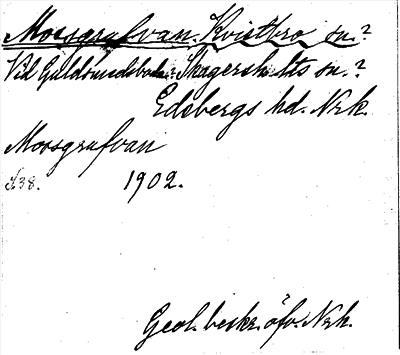 Mossgrafvan. Kvistbro sn.?
Vid Guldsmedsboda? Skagersh lts sn.?
Edsbergs hd. Nrk.
Mossgrafvan
s. 38. 1902.
Geol. beskr. öfv. Nrk.